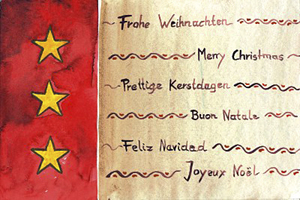 Frohe Weihnachten
Merry Christmas
Prettige Kerstdagen
Buon Natale
Feliz Navidad
Joyeux Noël